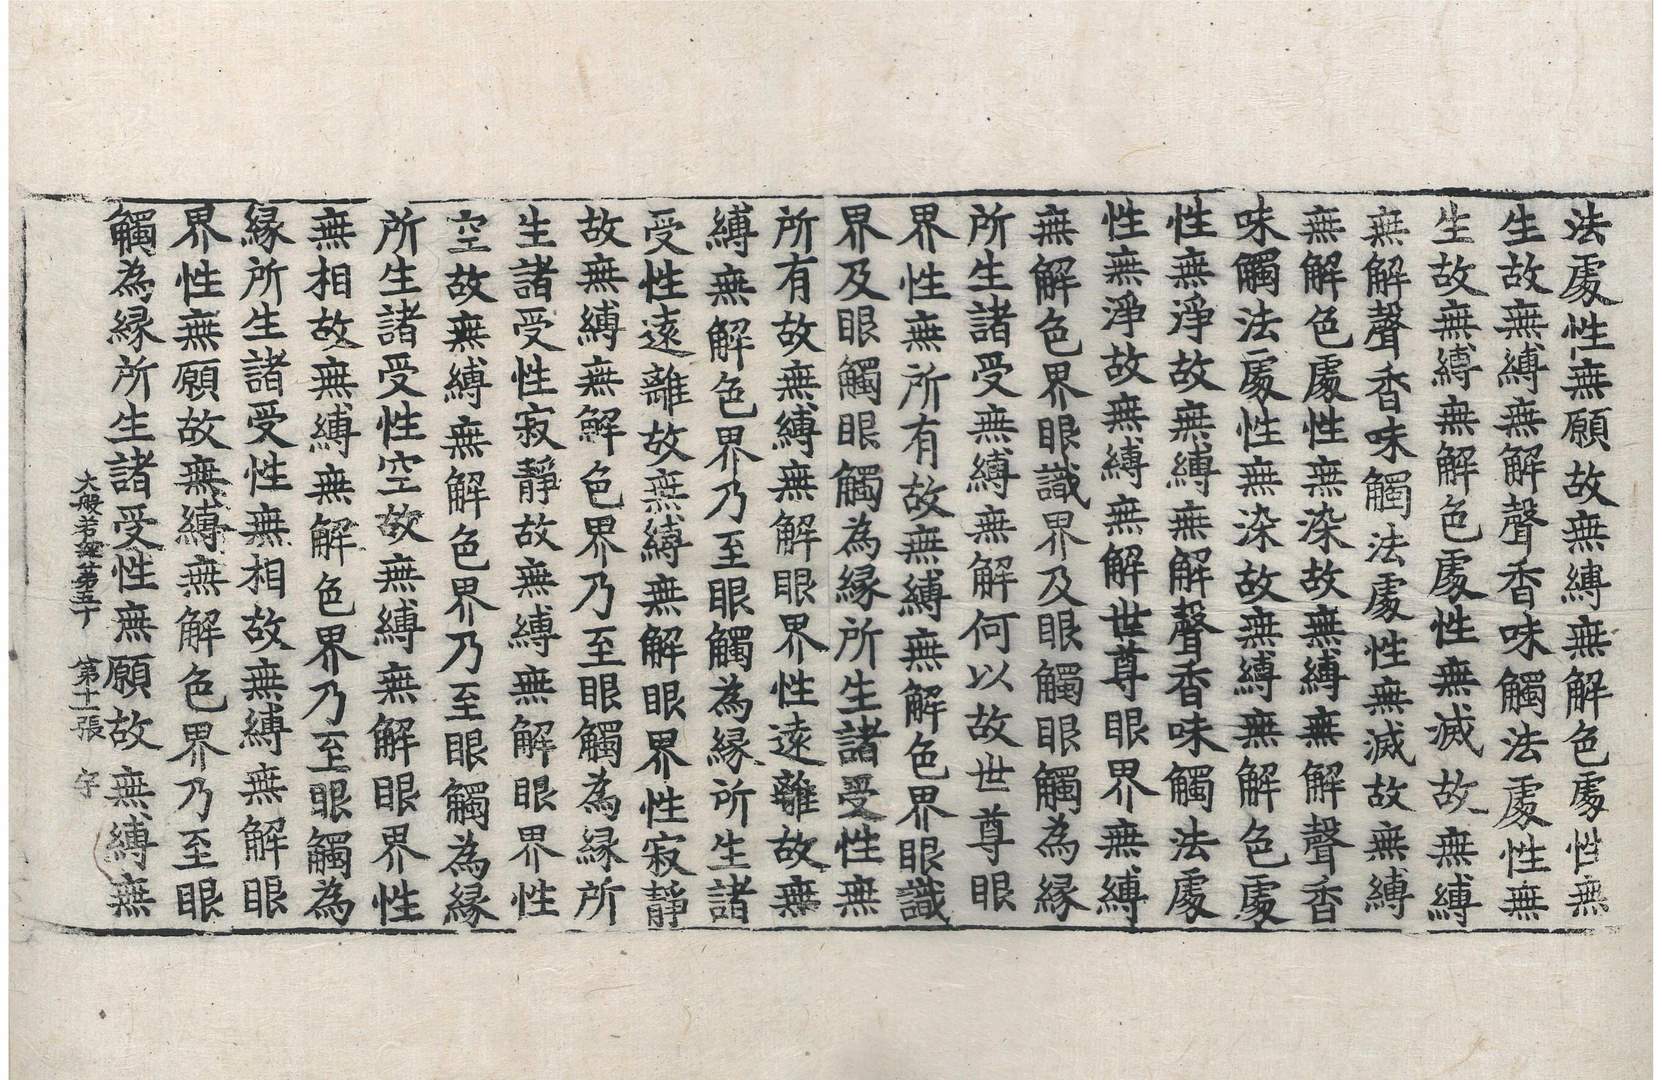 法處性無願故無縛無解色處性無
生故無縛無解聲香味觸法處性無
生故無縛無解色處性無滅故無縛
無解聲香味觸法處性無滅故無縛
無解色處性無染故無縛無解聲香
味觸法處性無染故無縛無解色處
性無淨故無縛無解聲香味觸法處
性無淨故無縛無解世尊眼界無縛
無解色界眼識界及眼觸眼觸為緣
所生諸受無縛無解何以故世尊眼
界性無所有故無縛無解色界眼識
界及眼觸眼觸為緣所生諸受性無
所有故無縛無解眼界性遠離故無
縛無解色界乃至眼觸為緣所生諸
受性遠離故無縛無解眼界性寂靜
故無縛無解色界乃至眼觸為緣所
生諸受性寂靜故無縛無解眼界性
空故無縛無解色界乃至眼觸為緣
所生諸受性空故無縛無解眼界性
無相故無縛無解色界乃至眼觸為
緣所生諸受性無相故無縛無解眼
界性無願故無縛無解色界乃至眼
觸為緣所生諸受性無願故無縛無
大般若經第五十 第十一張